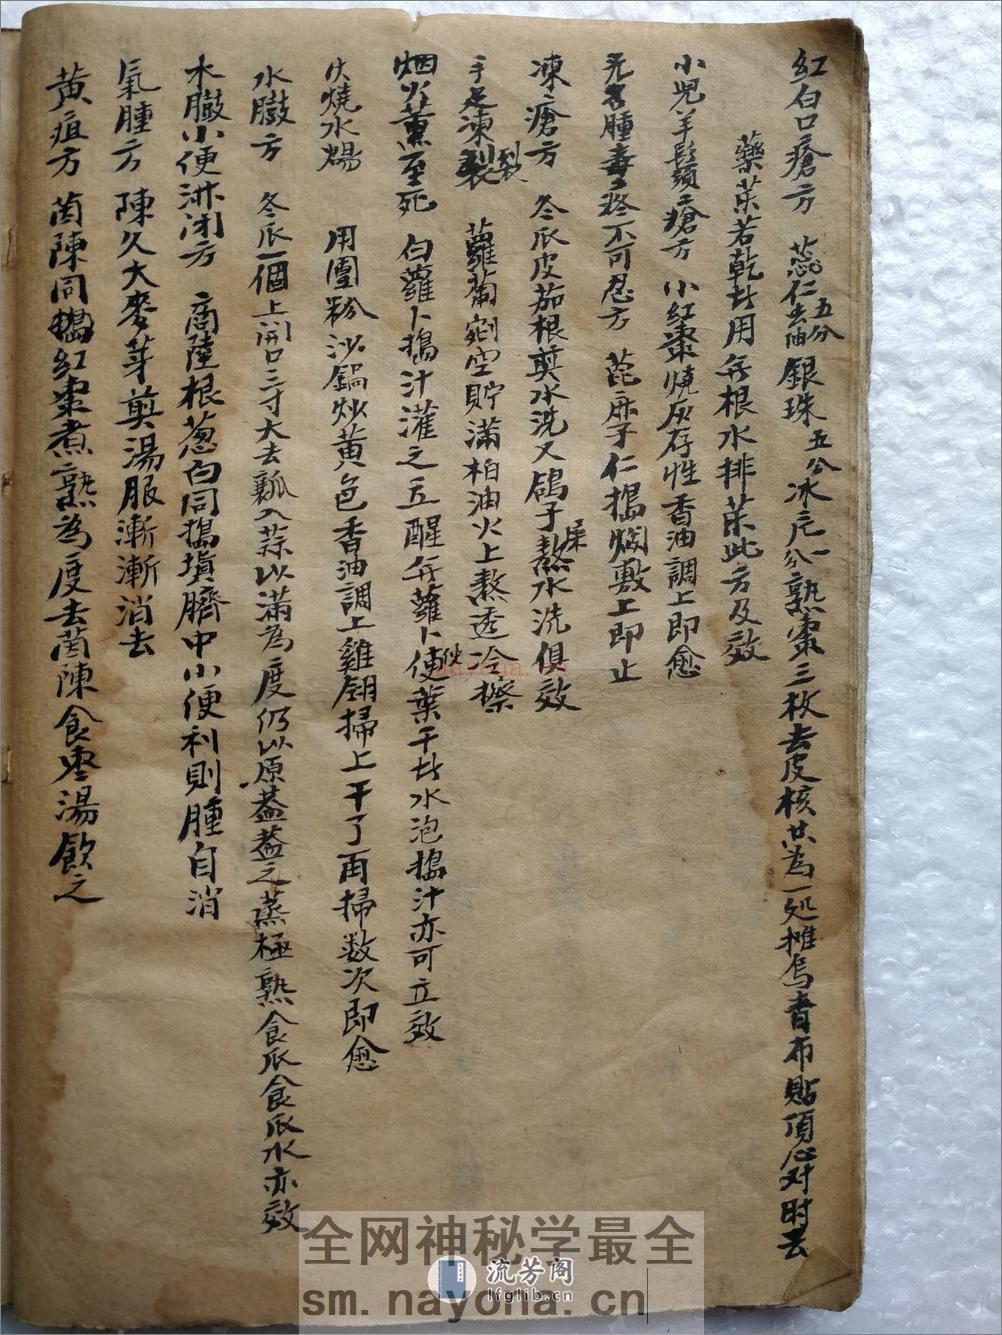 紅白口瘡方 蕊仁去油五分 銀珠五分 冰片一分 熟棗三枚去皮核共為一処摊烏青布貼頂心对时去
藥菜若乾时用無根水排菜此方及效
小児羊鬍瘡方 小紅棗燒灰存性香油調上即愈
无名腫毒疼不可忍方 蓖麻子仁搗烂敷上即止
凍瘡方 冬瓜皮茄根煎水洗又鴿子屎熬水洗俱效
手足凍裂 蘿蔔剜空貯滿柏油火上熬透冷擦
烟火薰至死 白蘿卜搗汁灌之立醒無蘿卜使葉干时水泡搗汁亦可立效
火燒水燙 用團粉沙鍋炒黄色香油調上雞翎掃上干了再掃数次即愈
水臌方 冬瓜一個上開口三寸大去瓤入蒜以滿為度仍以原蓋蓋之蒸極熟食瓜食瓜水亦效
水臌小便淋闭方 商陸根葱白同搗填臍中小便利則腫自消
氣腫方 陳久大麥芽煎湯服漸漸消去
黄疸方 茵陳同搗紅棗煮熟為度去茵陳食枣湯飲之
nayona.cn
全网神秘学最全
流芳阁
lfglib.cn
sm.nayona.cn